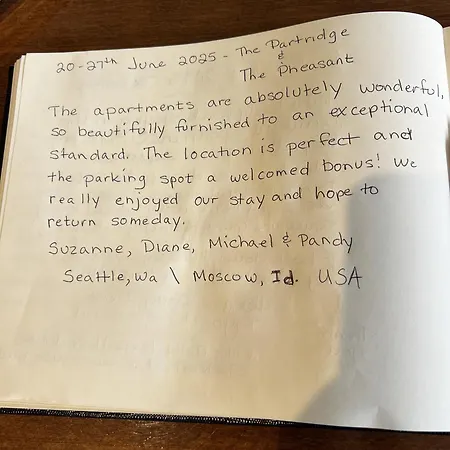 20-27th June 2025 - The Partridge
&
The Pheasant
The apartments are absolutely wonderful,
so beautifully furnished to an exceptional
standard. The location is perfect and
the parking spot a welcomed bonus! We
really enjoyed our stay and hope to
return someday.
Suzanne, Diane, Michael & Pandy
Seattle, Wa \ Moscow, Id. USA